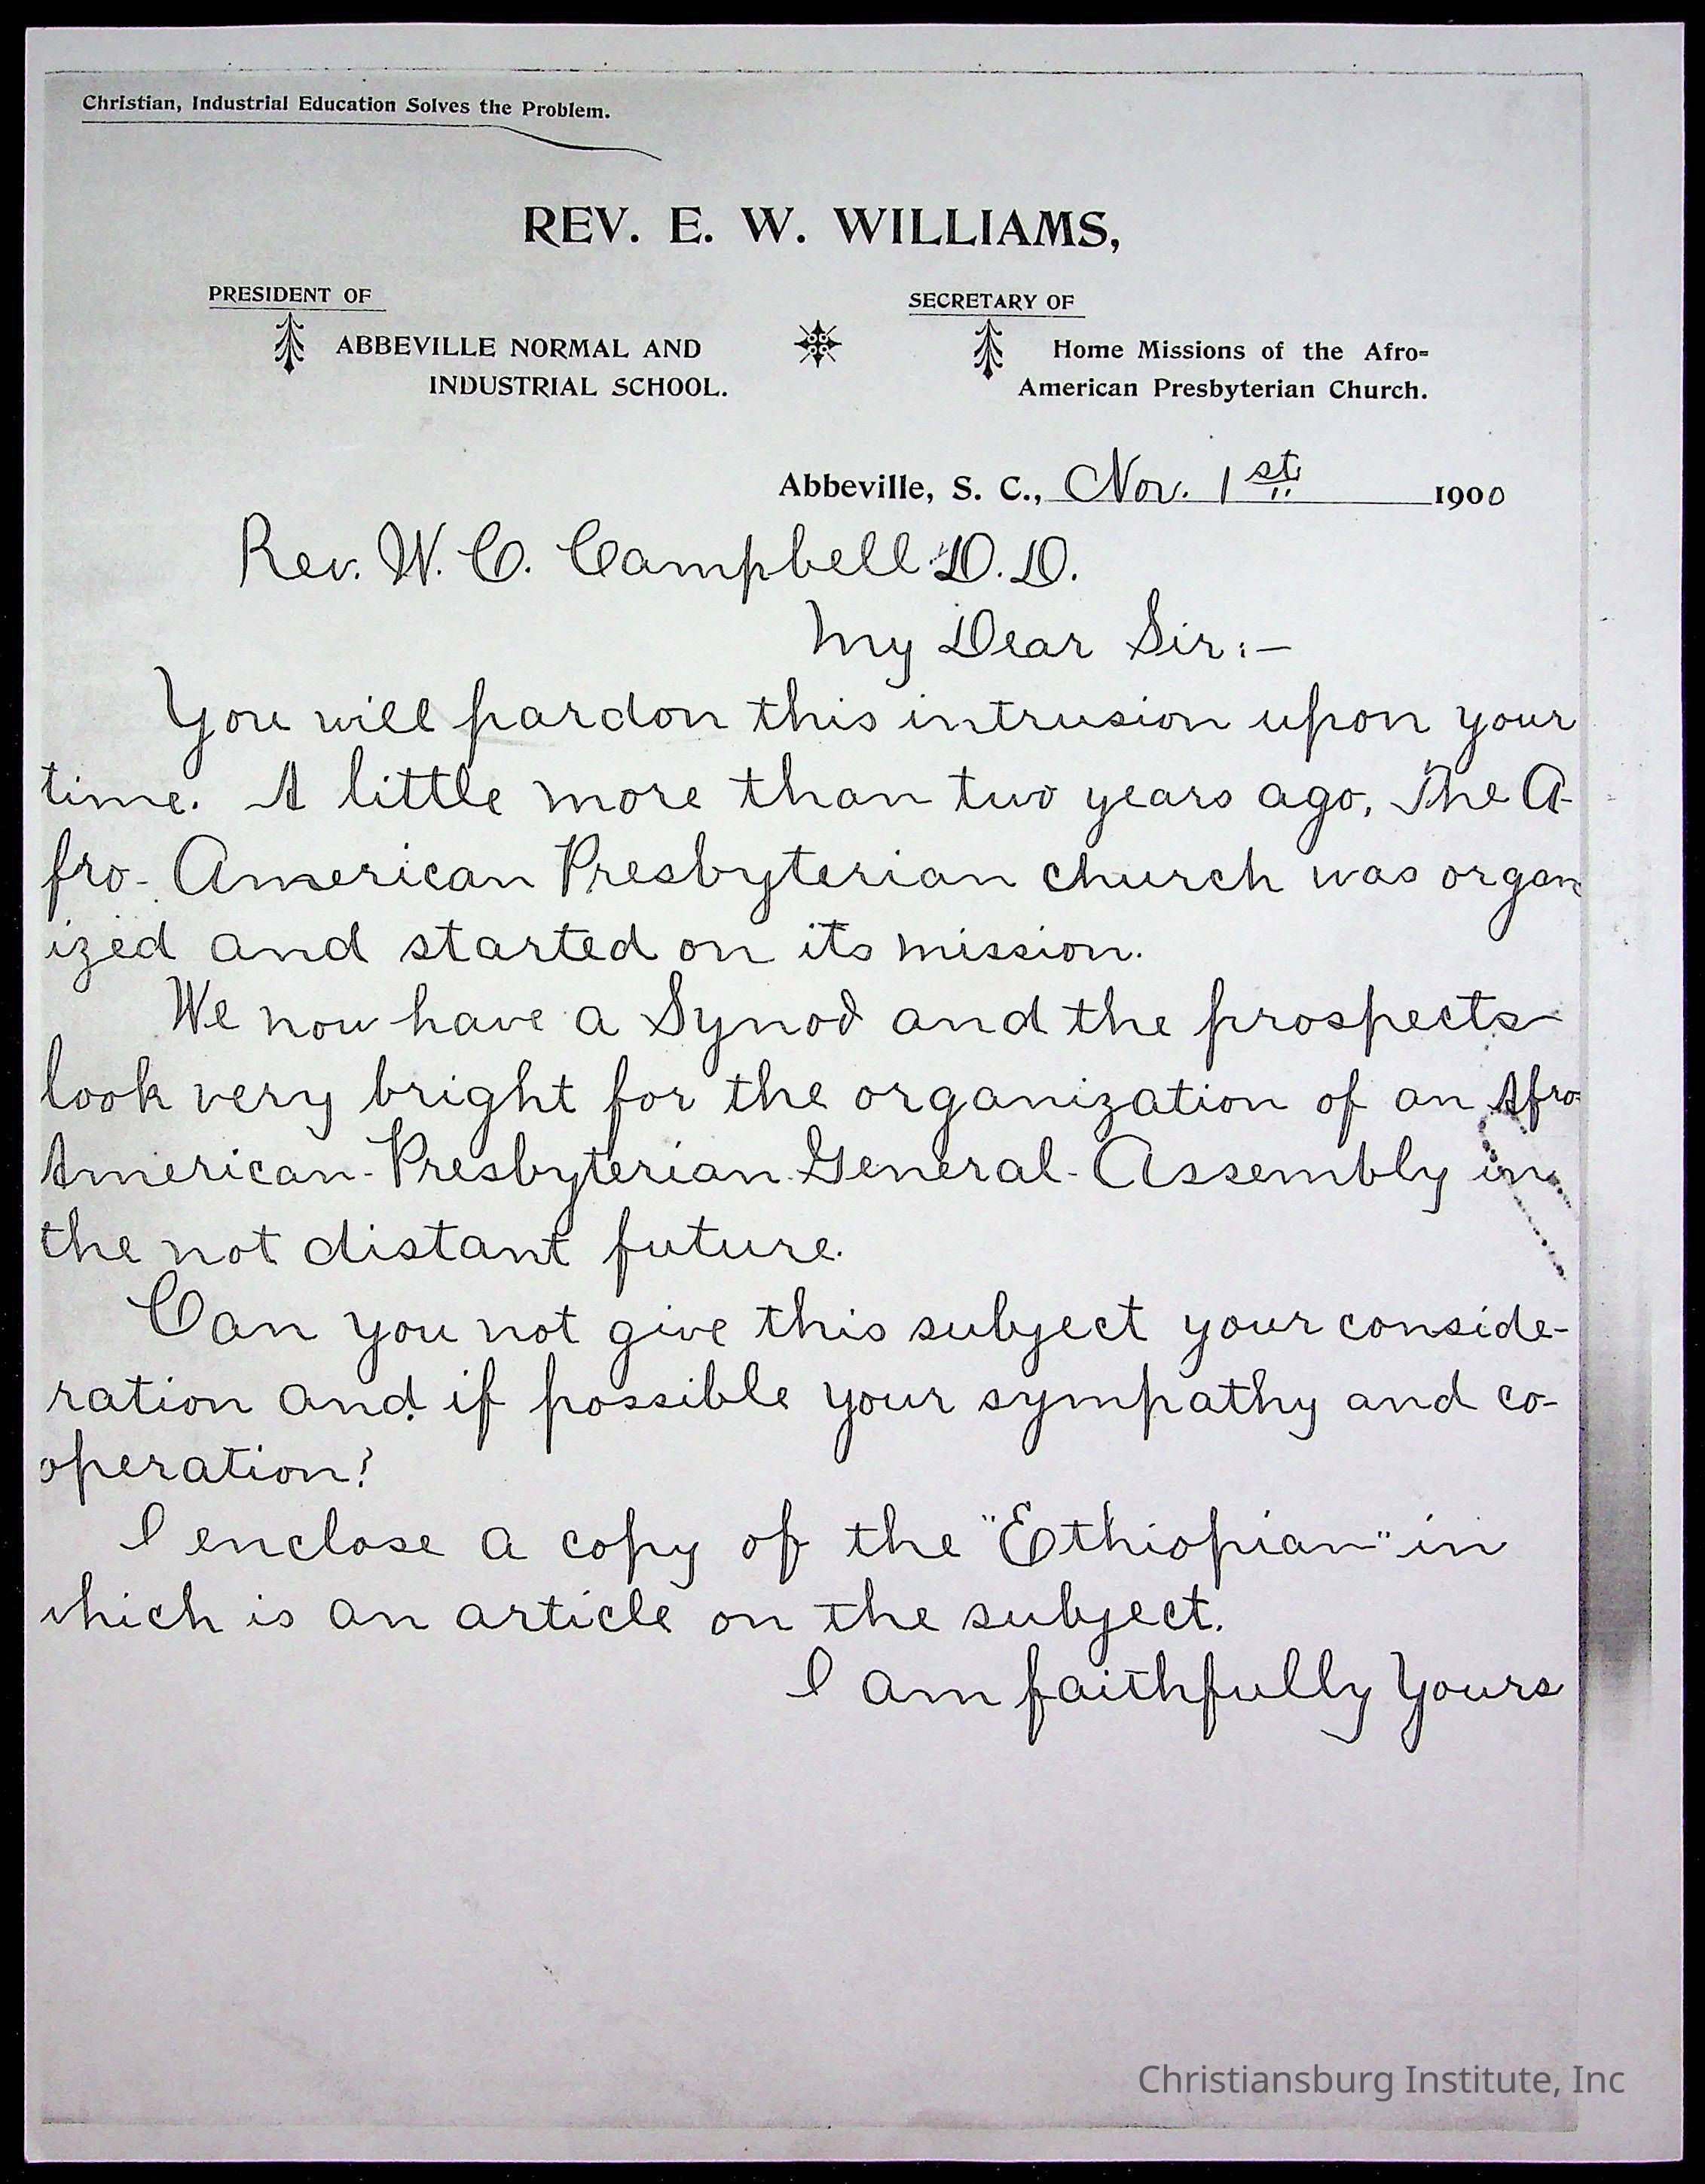 Christian, Industrial Education Solves the Problem.
REV. E. W. WILLIAMS,
PRESIDENT OF
ABBEVILLE NORMAL AND
INDUSTRIAL SCHOOL.
SECRETARY OF
Home Missions of the Afro-
American Presbyterian Church.
Abbeville, S. C., Nov. 1st 1900
Rev. W. C. Campbell D. D.
My Dear Sir:—
You will pardon this intrusion upon your
time. A little more than two years ago, The A-
fro-American Presbyterian church was organ
ized and started on its mission.
We now have a Synod and the prospects
look very bright for the organization of an Afro-
American-Presbyterian General-Assembly in
the not distant future.
Can you not give this subject your conside-
ration and if possible your sympathy and co-
operation?
I enclose a copy of the "Ethiopian" in
which is an article on the subject.
I am faithfully Yours
Christiansburg Institute, Inc